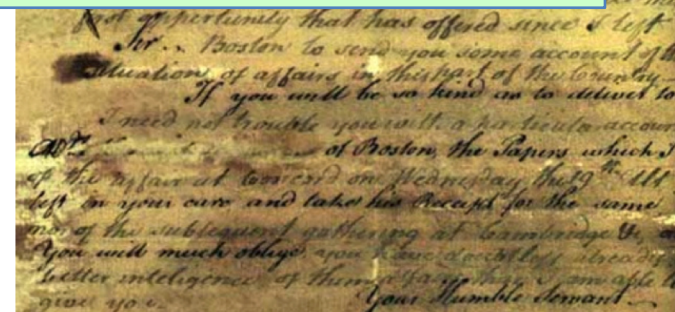 first oppertunity that has offered since I left
Sir .. Boston to send you some account of
situation of affairs in this part of the Country
If you will be so kind as to deliver to
I need not trouble you with a particular accoun
of Boston, the Papers which I
of the affair at Concord on Wednesday the 19th Ult
left in your care and take his Receipt for the same
of the subsequent gathering at Cambridge &c,
You will much oblige you have doubtless already
better inteligence of than I am able
give you. Your Humble Servant